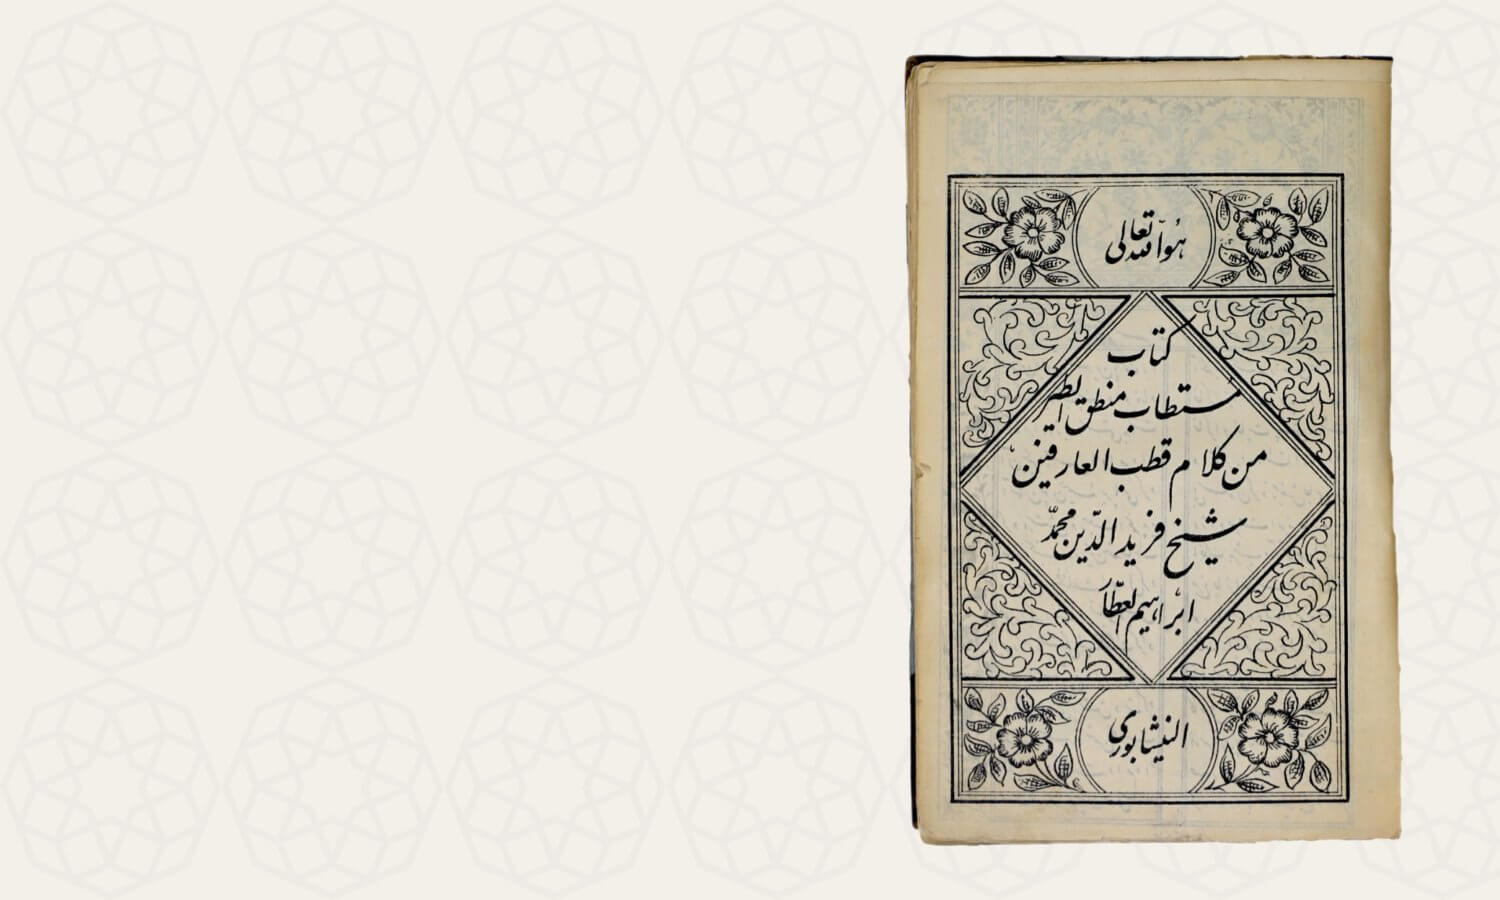 هو الله تعالی
کتاب
مستطاب منطق الطیر
من کلام قطب العارفین
شیخ فرید الدّین محمّد
ابراهیم العطّار
النیشابوری